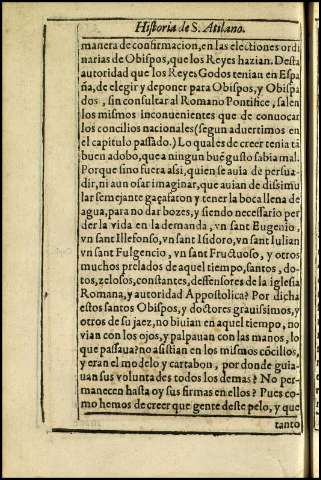 Historia de S. Atilano.
manera de confirmacion, en las electiones ordi
narias de Obispos, que los Reyes hazian. Desta
autoridad que los Reyes Godos tenian en Espa
ña, de elegir y deponer para Obispos, y Obispa
dos, sin consultar al Romano Pontifice, salen
los mismos inconuenientes que de conuocar
los concilios nacionales (segun aduertimos en
el capitulo passado.) Lo qual es de creer tenia tã
buen adobo, que a ningun buẽ gusto sabia mal.
Porque sino fuera assi, quien se auia de persua-
dir, ni aun osar imaginar, que auian de dissimu
lar semejante gaçafaton y tener la boca llena de
agua, para no dar bozes, y siendo necessario per
der la vida en la demanda, vn sant Eugenio,
vn sant Illefonso, vn sant Isidoro, vn sant Iulian
vn sant Fulgencio, vn sant Fructuoso, y otros
muchos prelados de aquel tiempo, santos, do-
tos, zelosos, constantes, deffensores de la iglesia
Romana, y autoridad Appostolica? Por dicha
estos santos Obispos, y doctores grauissimos, y
otros de su jaez, no biuian en aquel tiempo, no
vian con los ojos, y palpauan con las manos, lo
que passaua? no asistian en los mismos cõcilios,
y eran el modelo y cartabon, por donde guia-
uan sus voluntades todos los demas? No per-
manecen hasta oy sus firmas en ellos? Pues co-
mo hemos de creer que gente deste pelo, y que
tanto